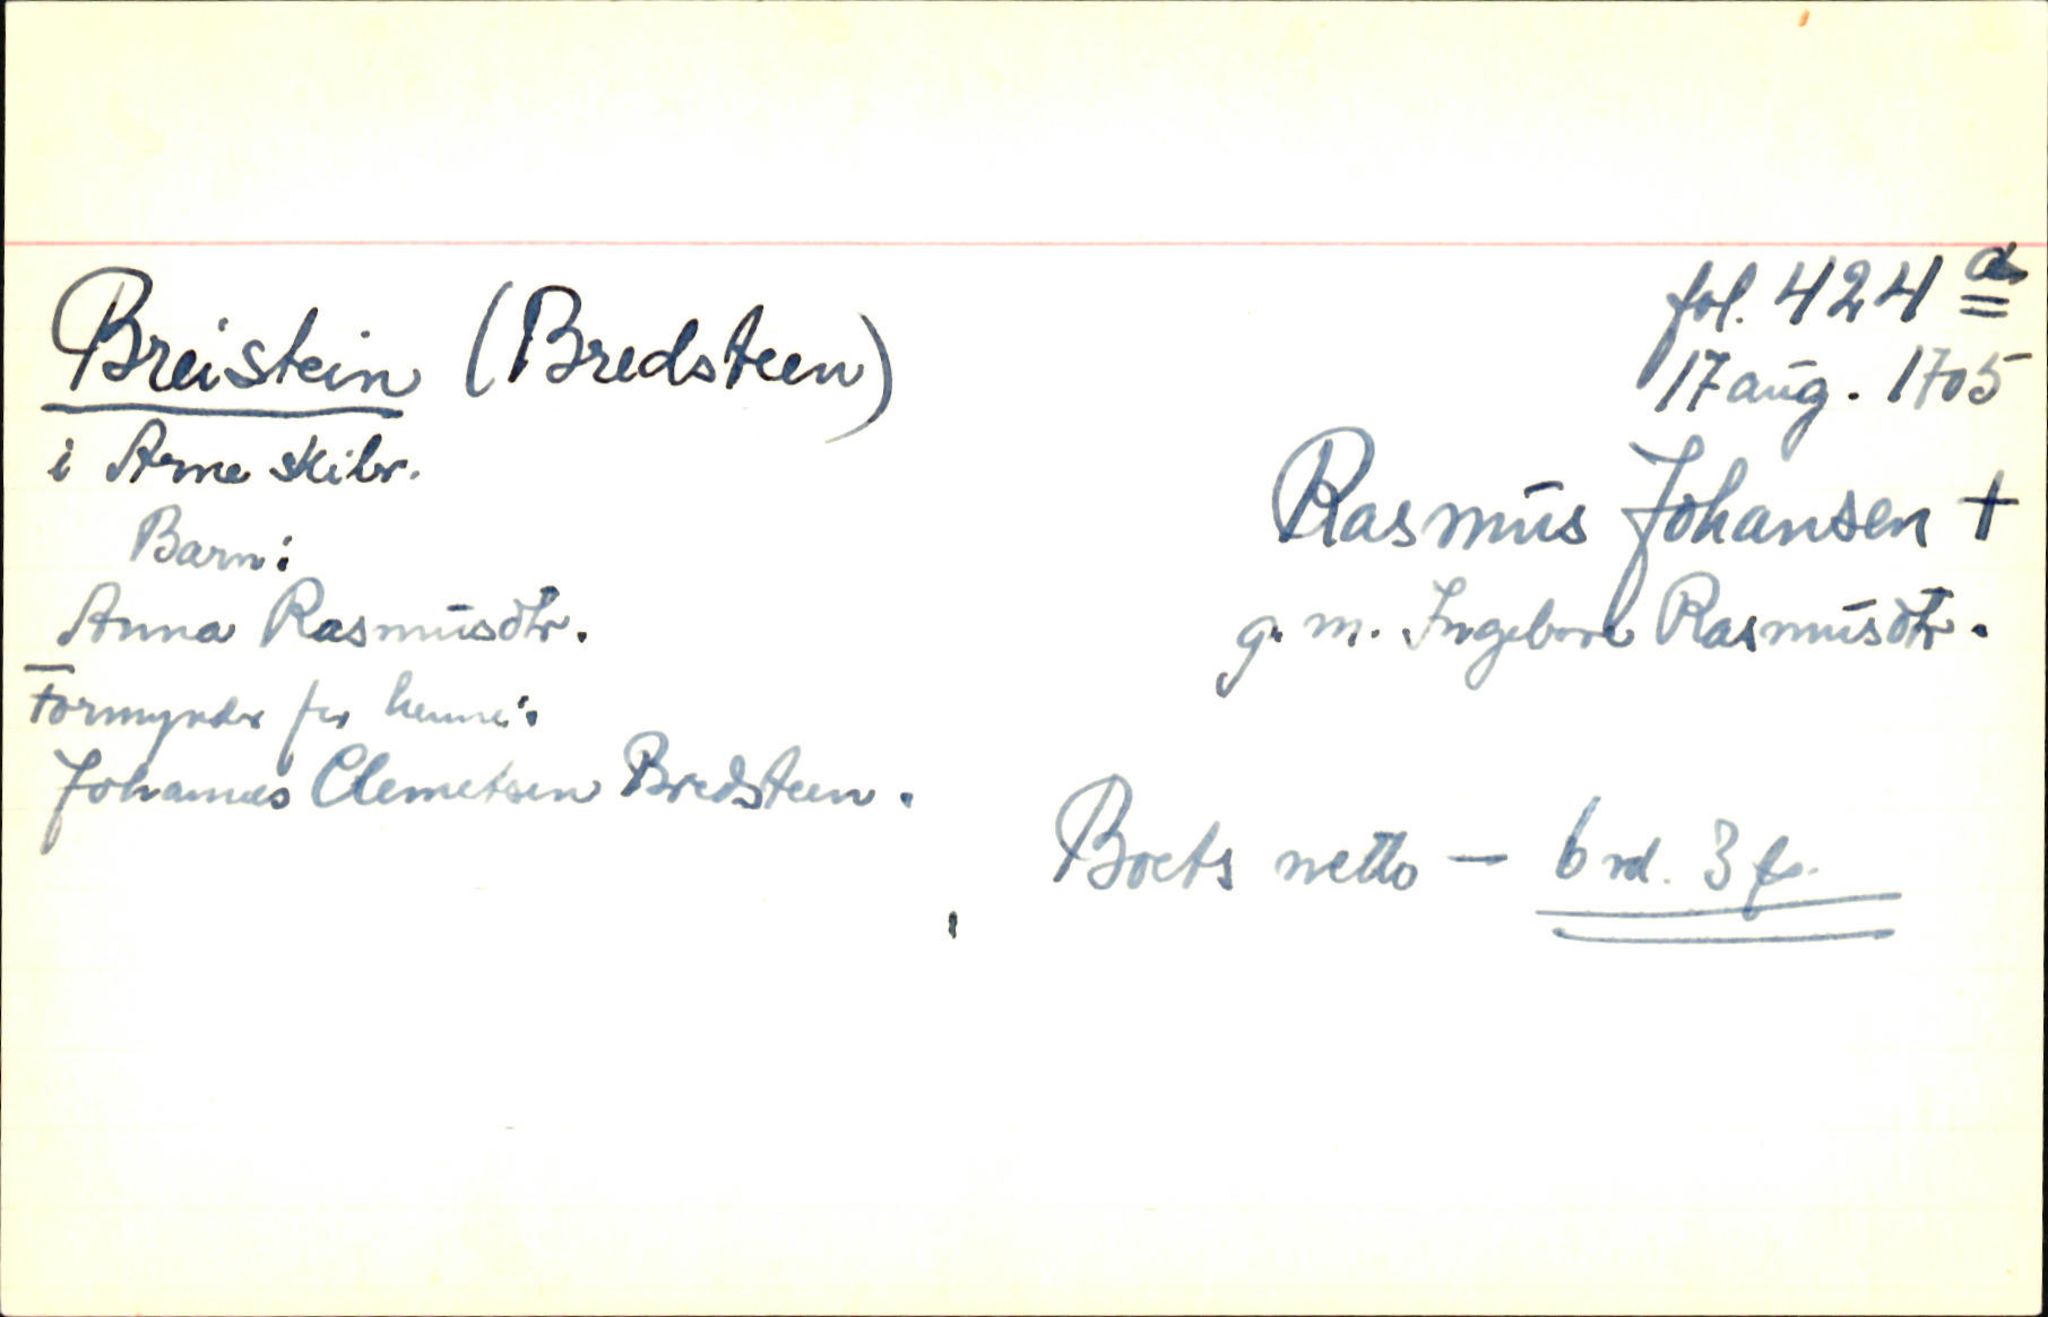 fol. 424 a
17 aug. 1705
Breistein (Bredsteen)
i Arne skibr.
Rasmus Johansen +
g. m. Ingeborl Rasmusdtr.
Barn:
Anna Rasmusdtr.
Formynder for henne:
Johannes Clemetsen Bredsteen.
Boets netto — 6 rd. 3